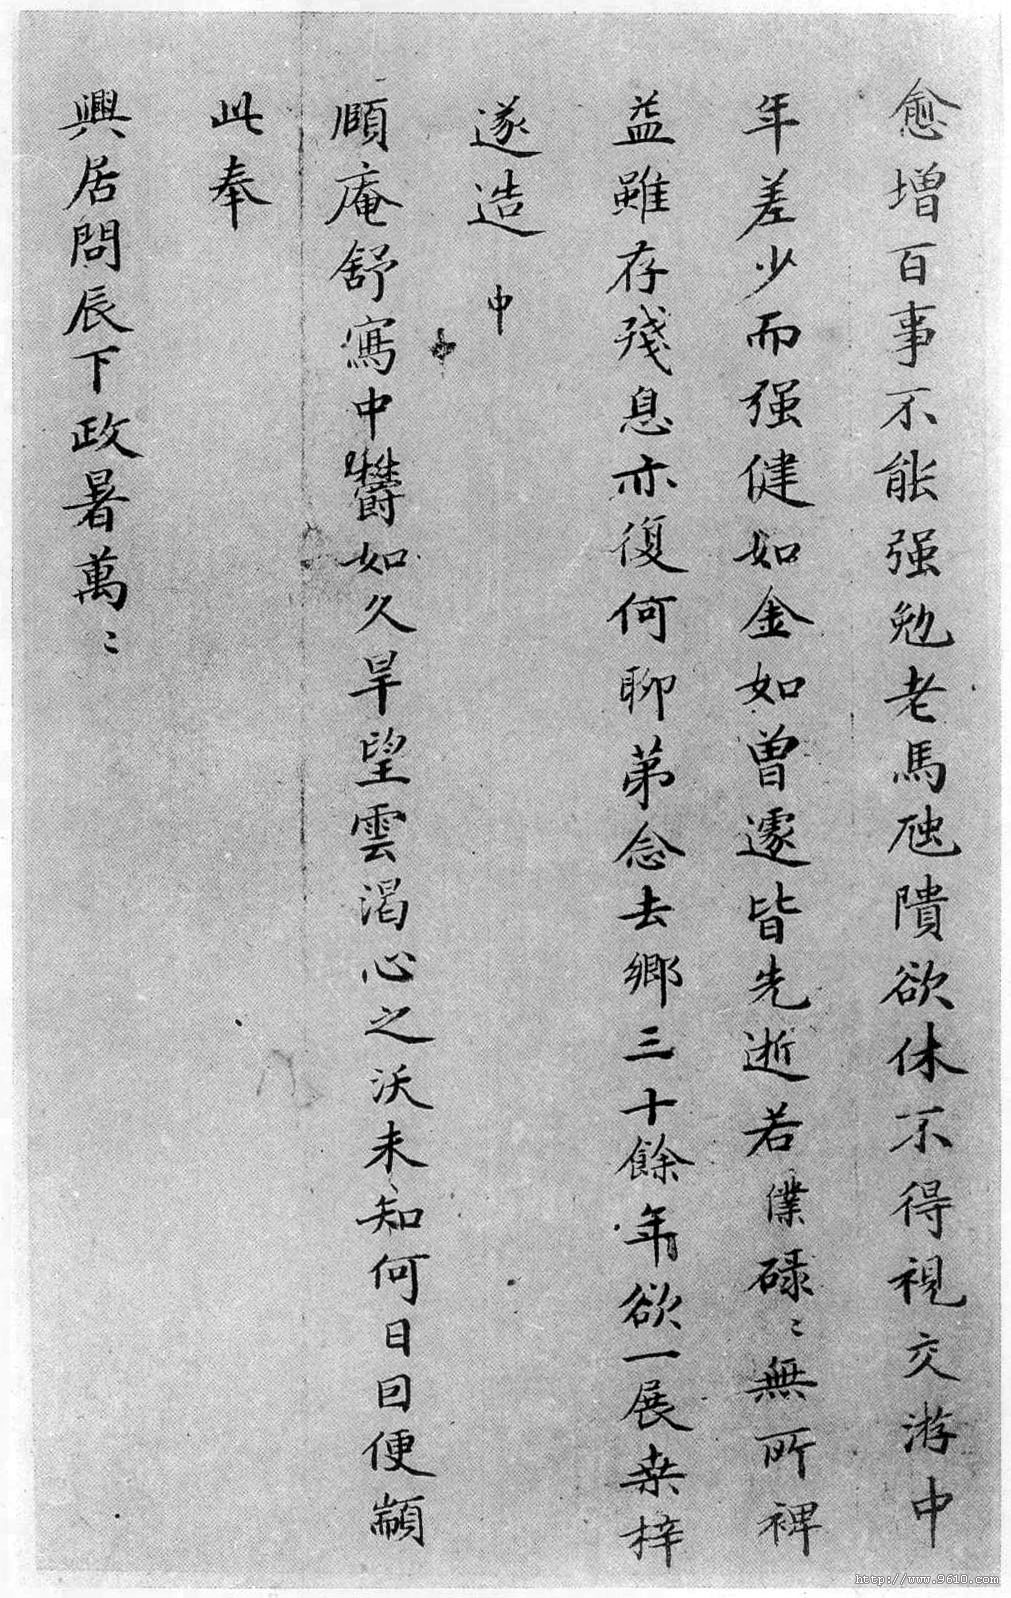 愈增百事不能强勉老馬虺隤欲休不得視交游中
年差少而强健如金如曾遽皆先逝若僕碌〻無所裨
益雖存殘息亦復何聊苐念去鄉三十餘年欲一展桒梓
遂造中
頤庵舒寫中欝如久旱望雲渴心之沃未知何日因便顓
此奉
興居問辰下政暑萬〻
http://www.9610.com